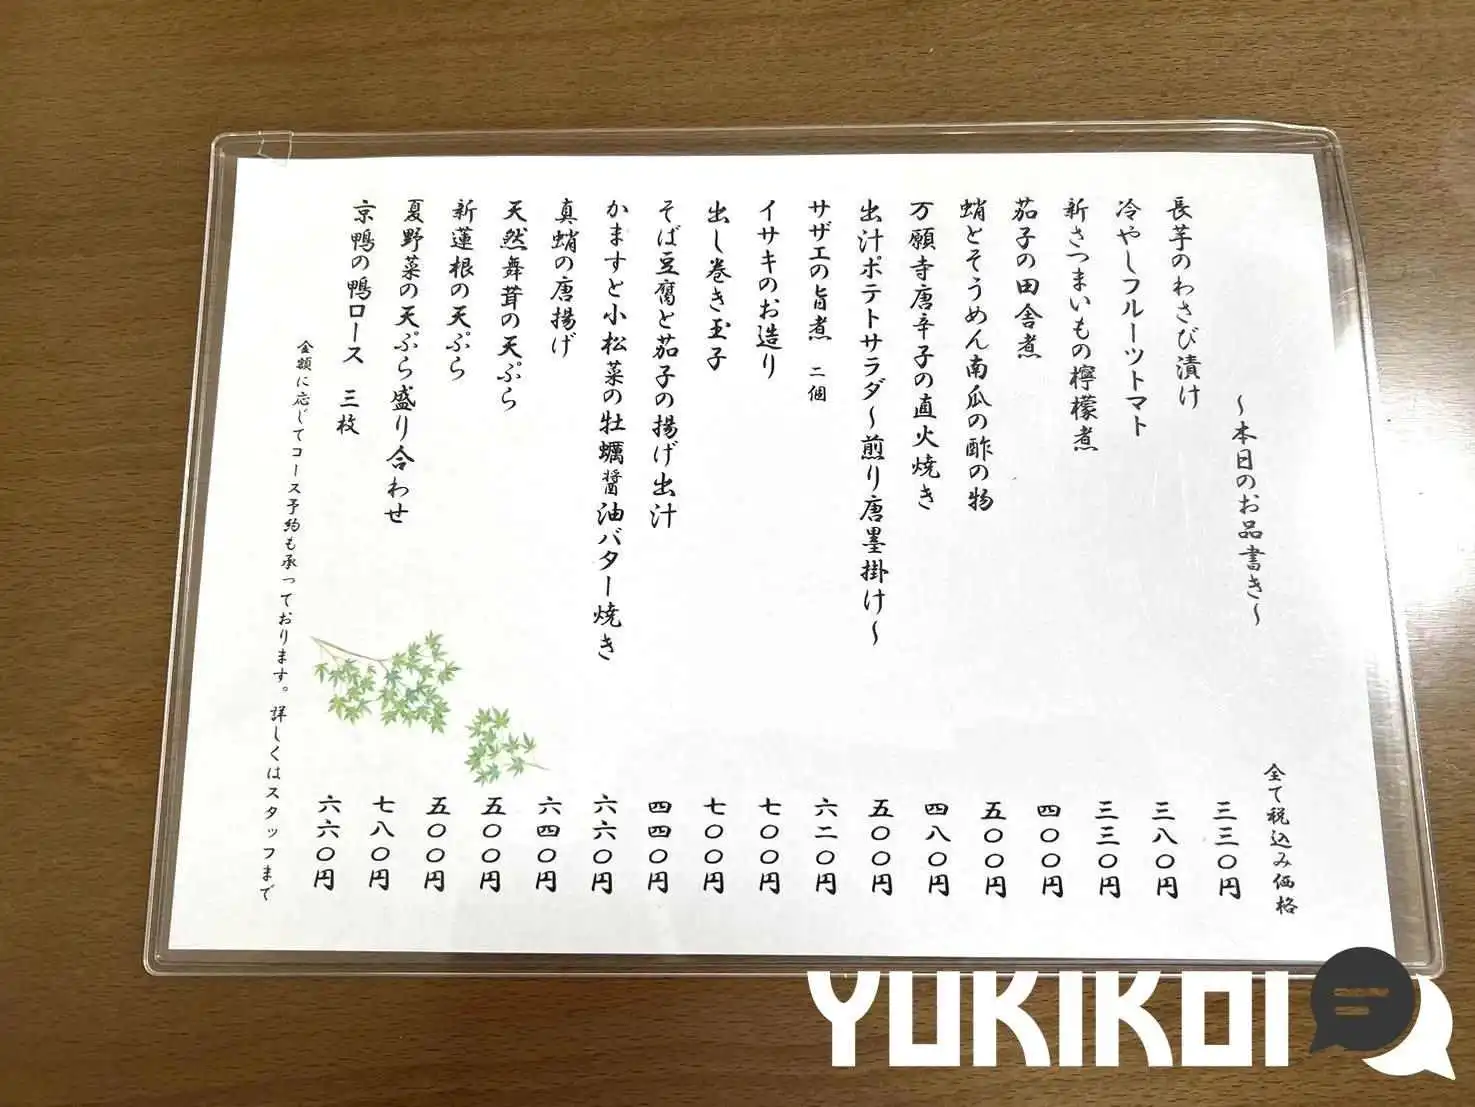 〜本日のお品書き〜
全て税込み価格
長芋のわさび漬け 三三〇円
冷やしフルーツトマト 三八〇円
新さつまいもの檸檬煮 三三〇円
茄子の田舎煮 四〇〇円
蛸とそうめん南瓜の酢の物 五〇〇円
万願寺唐辛子の直火焼き 四八〇円
出汁ポテトサラダ〜煎り唐墨掛け〜 五〇〇円
サザエの旨煮 二個 六二〇円
イサキのお造り 七〇〇円
出し巻き玉子 七〇〇円
そば豆腐と茄子の揚げ出汁 四四〇円
かますと小松菜の牡蠣醤油バター焼き 六六〇円
真蛸の唐揚げ 六四〇円
天然舞茸の天ぷら 五〇〇円
新蓮根の天ぷら 五〇〇円
夏野菜の天ぷら盛り合わせ 七八〇円
京鴨の鴨ロース 三枚 六六〇円
金額に応じてコース予約も承っております。詳しくはスタッフまで
YUKIKOI